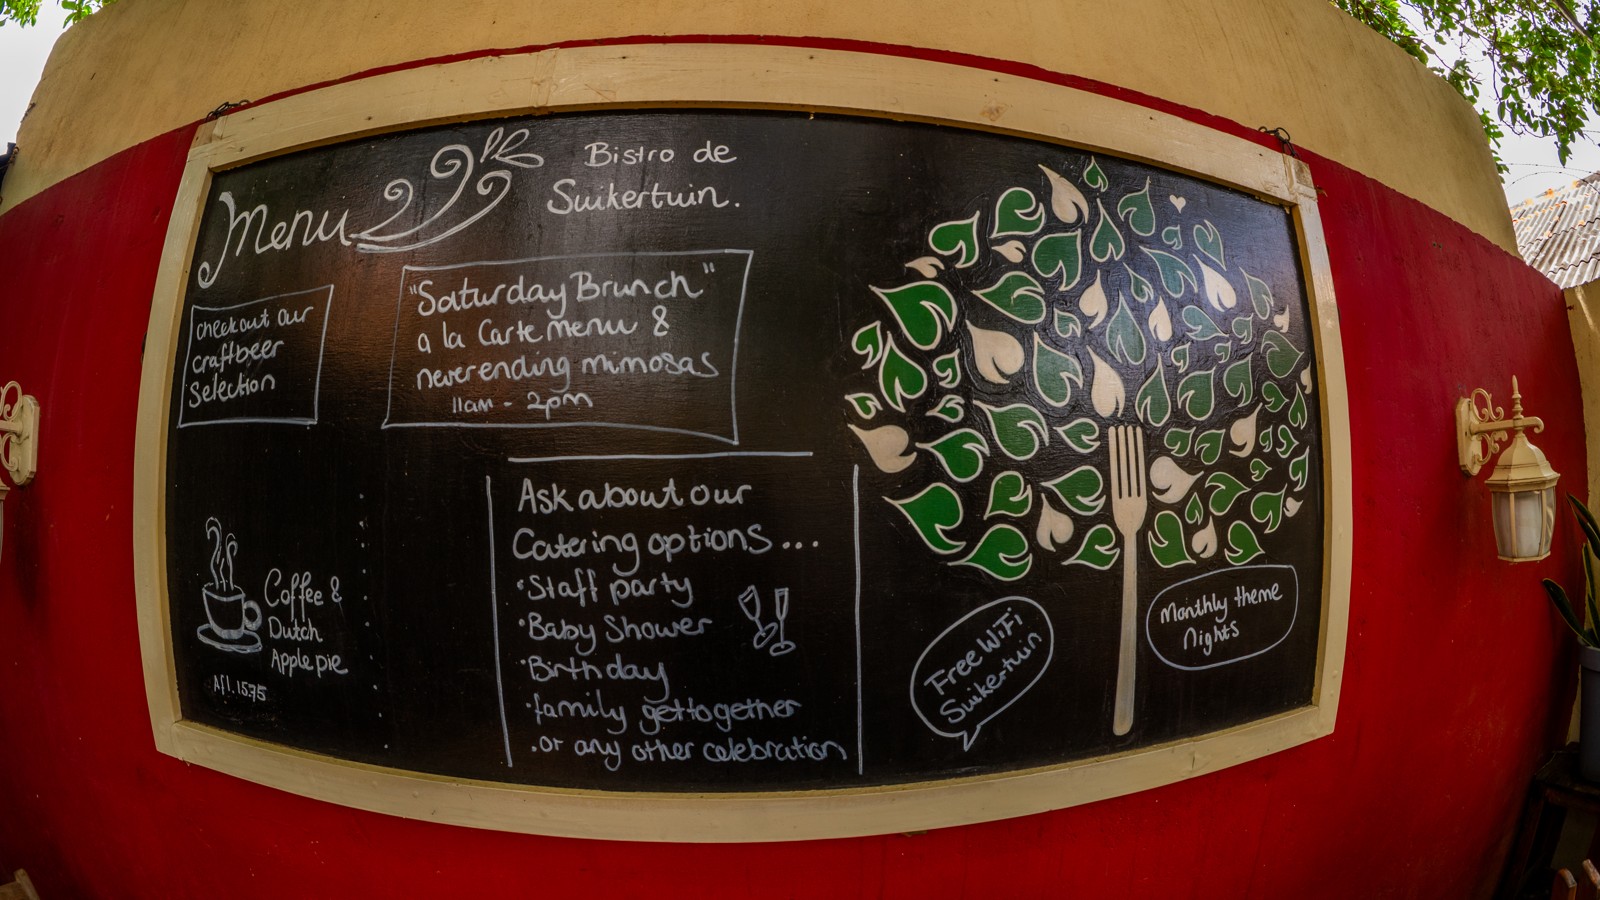 Menu
Bistro de
Suikertuin.
checkout our
craftbeer
Selection
"Saturday Brunch"
a la Carte menu &
neverending mimosas
11am - 2pm
Coffee &
Dutch
Apple pie
Afl. 15.75
Ask about our
Catering options...
·Staff party
·Baby Shower
·Birthday
·family gettogether
·or any other celebration
Free WiFi
Suikertuin
Monthly theme
Nights